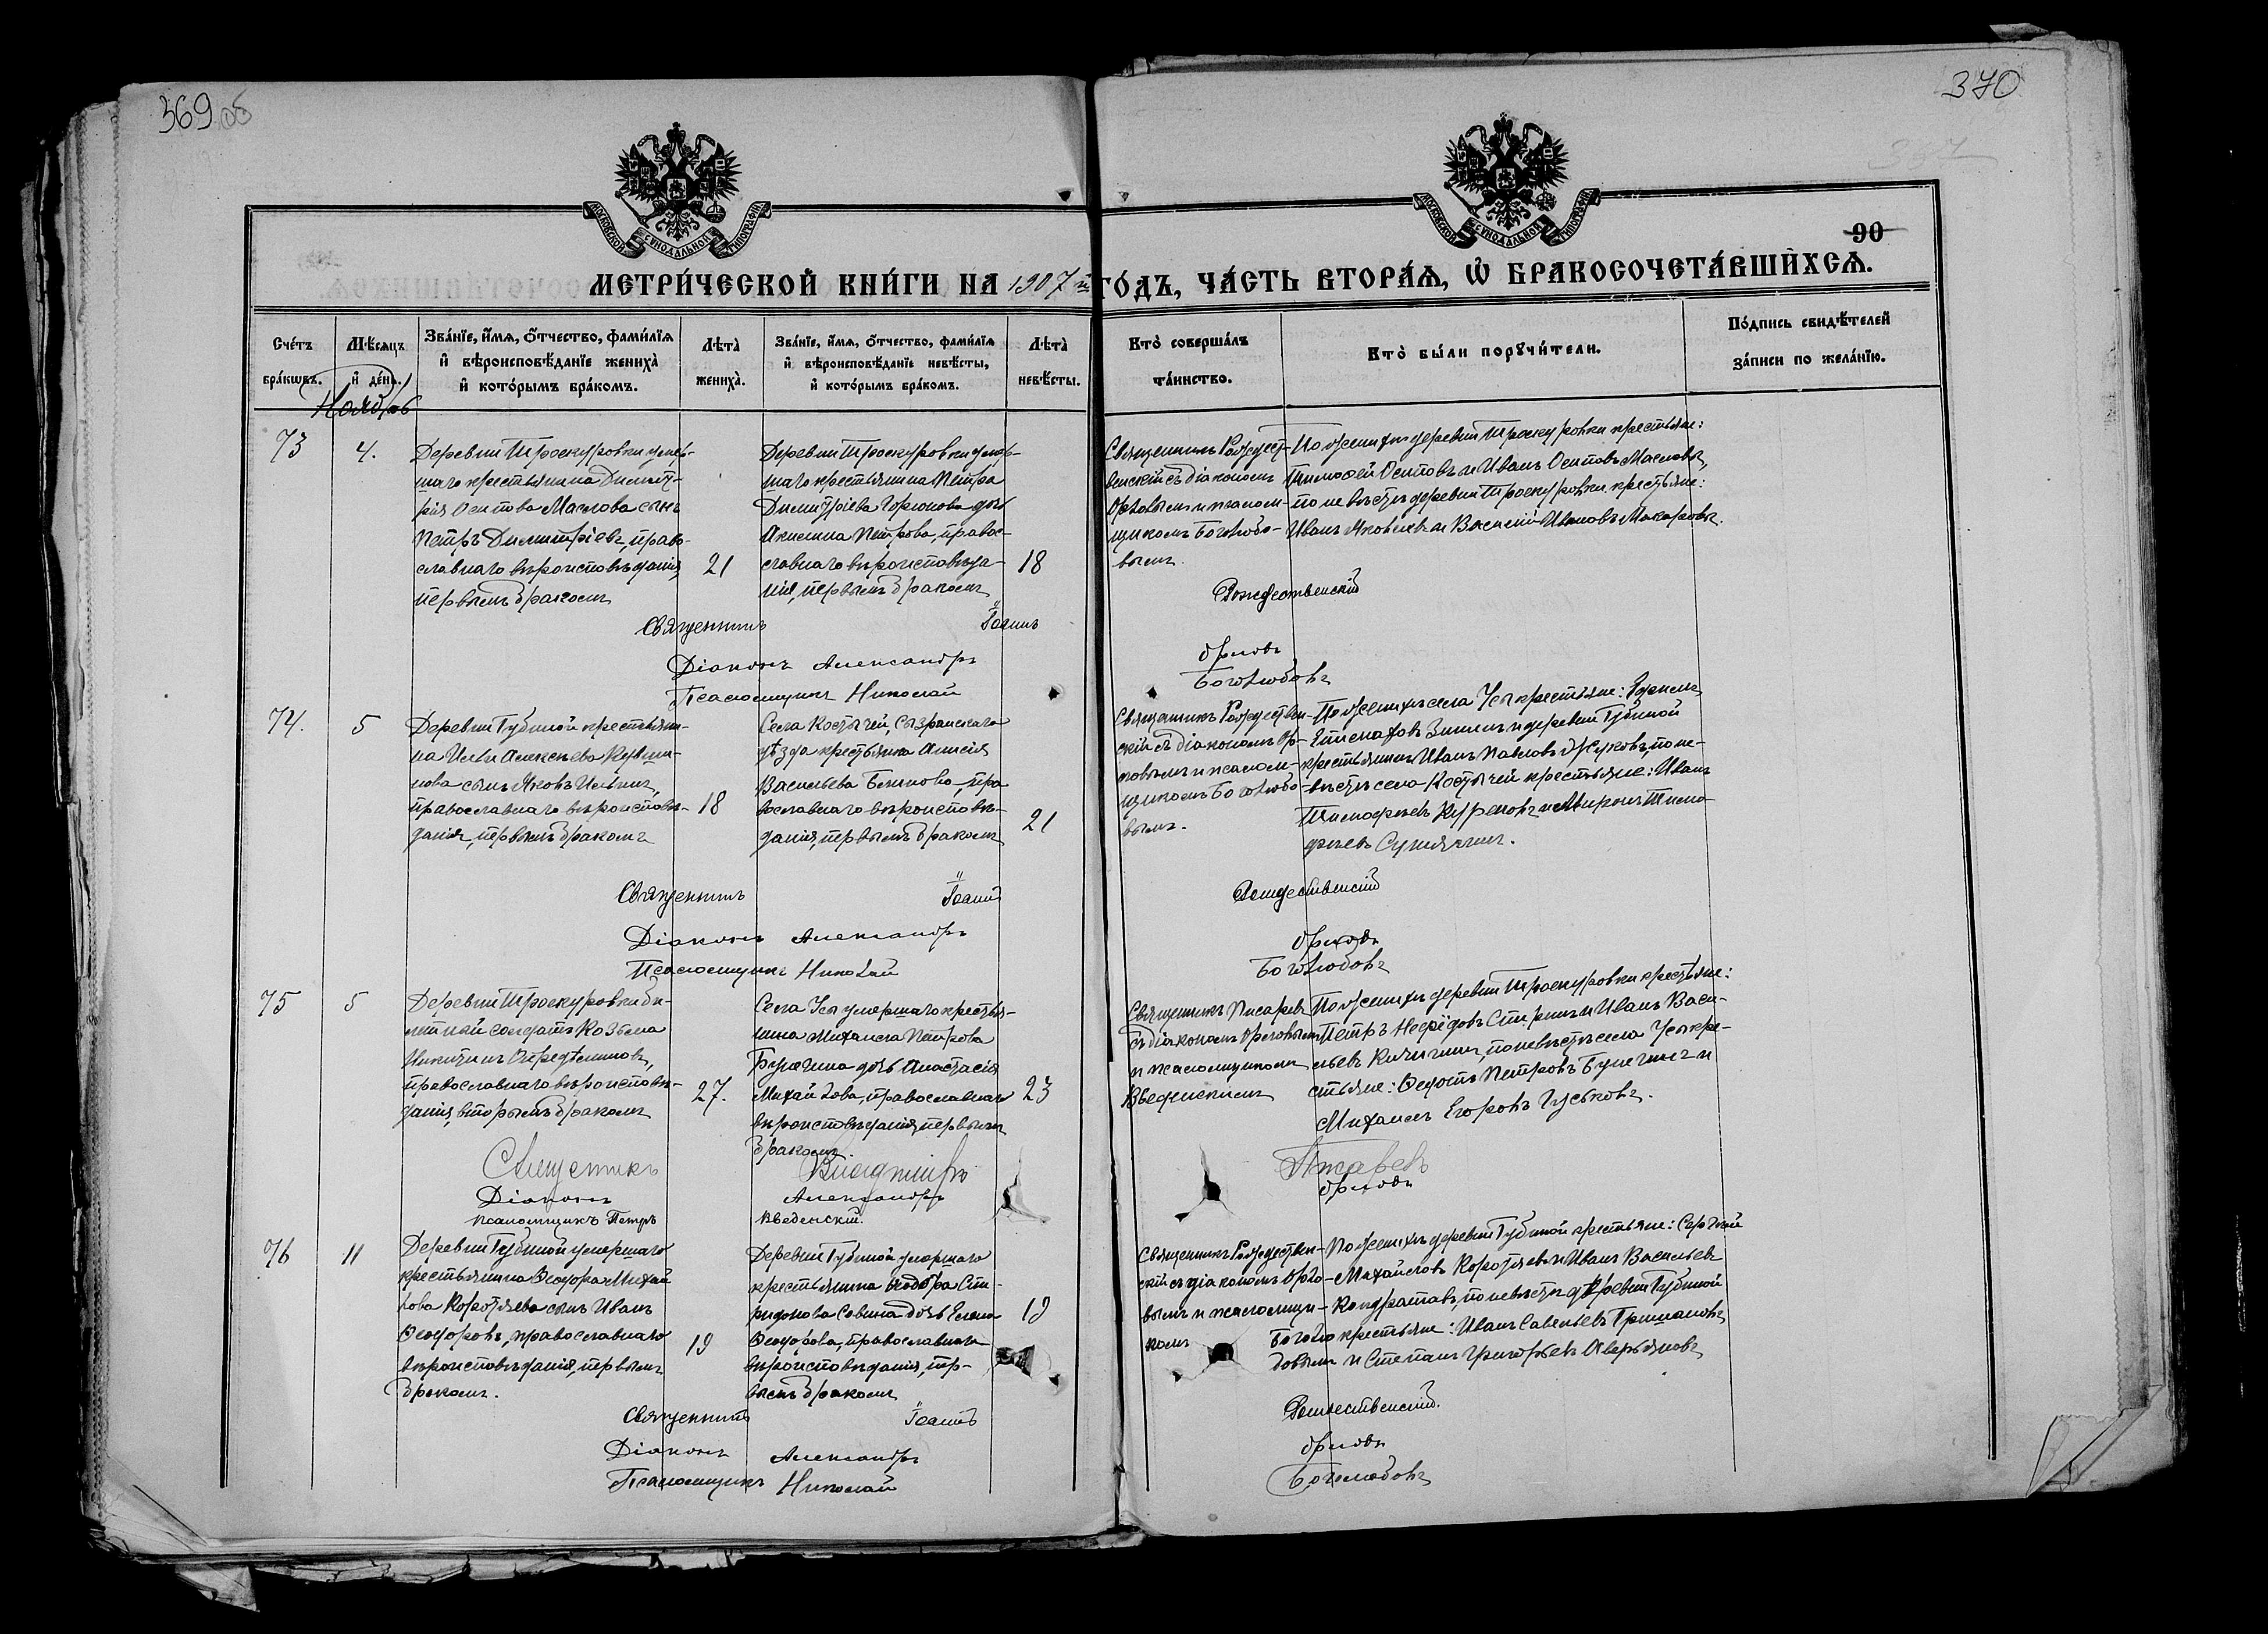 369 об
370
МОСКОВСКОЙ СѴНОДАЛЬНОЙ ТИПОГРАФІИ
МОСКОВСКОЙ СѴНОДАЛЬНОЙ ТИПОГРАФІИ
90
МЕТРИ́ЧЕСКОЙ КНИ́ГИ НА 1907 й ГО́ДЪ, ЧА́СТЬ ВТОРА́Ѧ, Ѽ БРАКОСОЧЕТА́ВШИХСѦ.
Сче́тъ
бра́кѡвъ.
Мѣ́сѧцъ
и҆ де́нь.
Зва́нїе, и҆́мѧ, ѻ҆́тчество, фами́лїѧ
и҆ вѣроисповѣ́данїе жениха̀
и҆ кото́рымъ бра́комъ.
Лѣта̀
жениха̀.
Зва́нїе, и҆́мѧ, ѻ҆́тчество, фами́лїѧ
и҆ вѣроисповѣ́данїе невѣ́сты,
и҆ кото́рымъ бра́комъ.
Лѣта̀
невѣ́сты.
Кто̀ соверша́лъ
та́инство.
Кто̀ бы́ли порꙋчи́тели.
По́дпись свидѣ́телей
за́писи по жела́нїю.
Ноябрь
73
4.
Деревни Троекуровки умер-
шаго крестьянина Димит-
рія Осипова Маслова сынъ
Петръ Димитріевъ, право-
славнаго вѣроисповѣданія,
первымъ бракомъ
21
Деревни Троекуровки умер-
шаго крестьянина Петра
Димитріева Горюнова дочь
Акилина Петрова, правос-
лавнаго вѣроисповѣда-
нія, первымъ бракомъ
18
Священникъ Рождест-
венскій съ діакономъ
Орловымъ и псалом-
щикомъ Боголюбо-
вымъ.
По женихѣ деревни Троекуровки крестьяне:
Тимофей Осиповъ и Иванъ Осиповъ Масловы,
по невѣстѣ деревни Троекуровки крестьяне:
Иванъ Яковлевъ и Василій Ивановъ Макаровы.
Священникъ Іоаннъ Рождественскій
Діаконъ Александръ Орловъ
Псаломщикъ Николай Боголюбовъ
74.
5
Деревни Губиной крестьяни-
на Ильи Алексѣева Кувши-
нова сынъ Яковъ Ильинъ,
православнаго вѣроисповѣ-
данія, первымъ бракомъ
18
Села Костычей, Сызранскаго
уѣзда крестьянка Алисія
Васильева Блинова, пра
вославнаго вѣроисповѣ-
данія, первымъ бракомъ
21
Священникъ Рождествен-
скій съ діакономъ Ор-
ловымъ и псалом-
щикомъ Боголюбо-
вымъ.
По женихѣ села Усы крестьяне:
Зининъ и деревни Губиной
крестьянинъ Иванъ Павловъ Жуковъ, по не-
вѣстѣ села Костычей крестьяне: Иванъ
Тимофѣевъ Куреновъ и Миронъ Тимо-
фѣевъ
Священникъ Іоаннъ Рождественскій
Діаконъ Александръ Орловъ
Псаломщикъ Николай Боголюбовъ
75
5
Деревни Троекуровки би-
летный солдатъ Козьма
Никитинъ
православнаго вѣроисповѣ-
данія, вторымъ бракомъ
27.
Села Усы умершаго крестья-
нина Михаила Петрова
Булегина дочь Анастасія
Михайлова, православнаго
вѣроисповѣданія, первымъ
бракомъ.
23
Священникъ Писаревъ
съ діакономъ Орловымъ
и псаломщикомъ
Введенскимъ
По женихѣ деревни Троекуровки крестьяне:
Петръ и Иванъ Васи-
льевъ Кичигинъ, по невѣстѣ села Усы кре-
стьяне: Ѳедотъ Петровъ Булегинъ и
Михаилъ Егоровъ Гуськовъ.
Священникъ Владиміръ Писаревъ
Діаконъ Александръ Орловъ
псаломщикъ Петръ Введенскій.
76
11
Деревни Губиной умершаго
крестьянина Ѳеодора Михай
лова Коротяева сынъ Иванъ
Ѳеодоровъ, православнаго
вѣроисповѣданія, первымъ
бракомъ.
19
Деревни Губиной умершаго
крестьянина Ѳеодора Спи-
ридонова Савина дочь Елена
Ѳеодорова, православнаго
вѣроисповѣданія, пер-
вымъ бракомъ
19
Священникъ Рождествен-
скій съ діакономъ Орло-
вымъ и псаломщи-
комъ Боголю
бовымъ
По женихѣ деревни Губиной крестьяне: Сергѣй
Михайловъ Коротяевъ и Иванъ Васильевъ
Кондратовъ, по невѣстѣ деревни Губиной
крестьяне: Иванъ Савельевъ Гришановъ
и Степанъ Григорьевъ Аверьяновъ
Священникъ Іоаннъ Рождественскій.
Діаконъ Александръ Орловъ
Псаломщикъ Николай Боголюбовъ